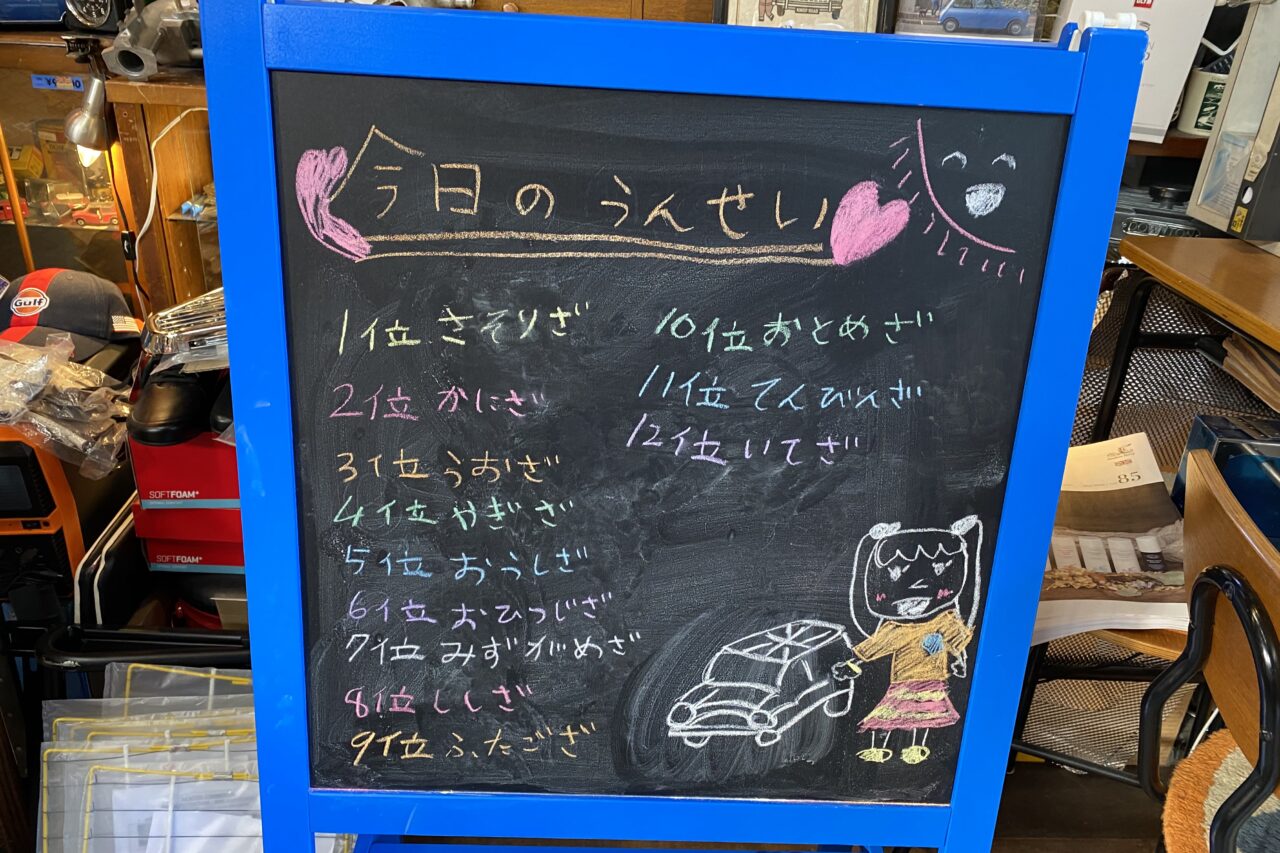 今日のうんせい
1位 さそりざ
2位 かにざ
3位 うおざ
4位 やぎざ
5位 おうしざ
6位 おひつじざ
7位 みずがめざ
8位 ししざ
9位 ふたござ
10位 おとめざ
11位 てんびんざ
12位 いてざ
Gulf
SOFTFOAM
SOFTFOAM
85